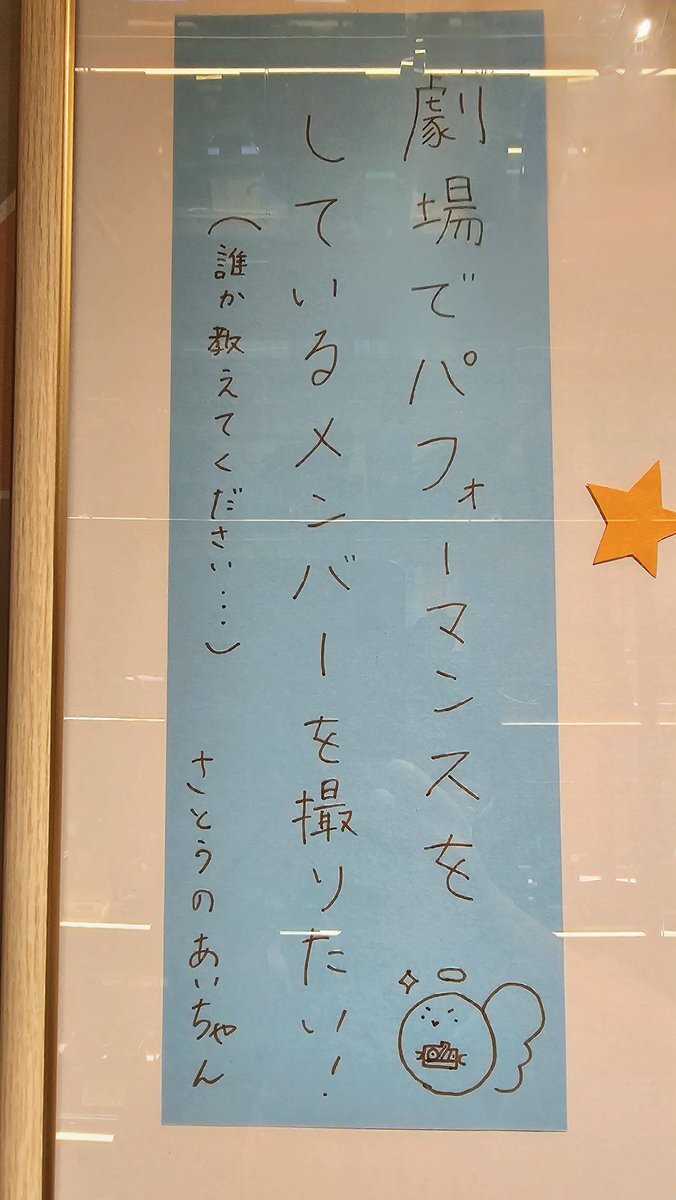 劇場でパフォーマンスを
しているメンバーを撮りたい！
（誰か教えてください…）
さとうのあいちゃん